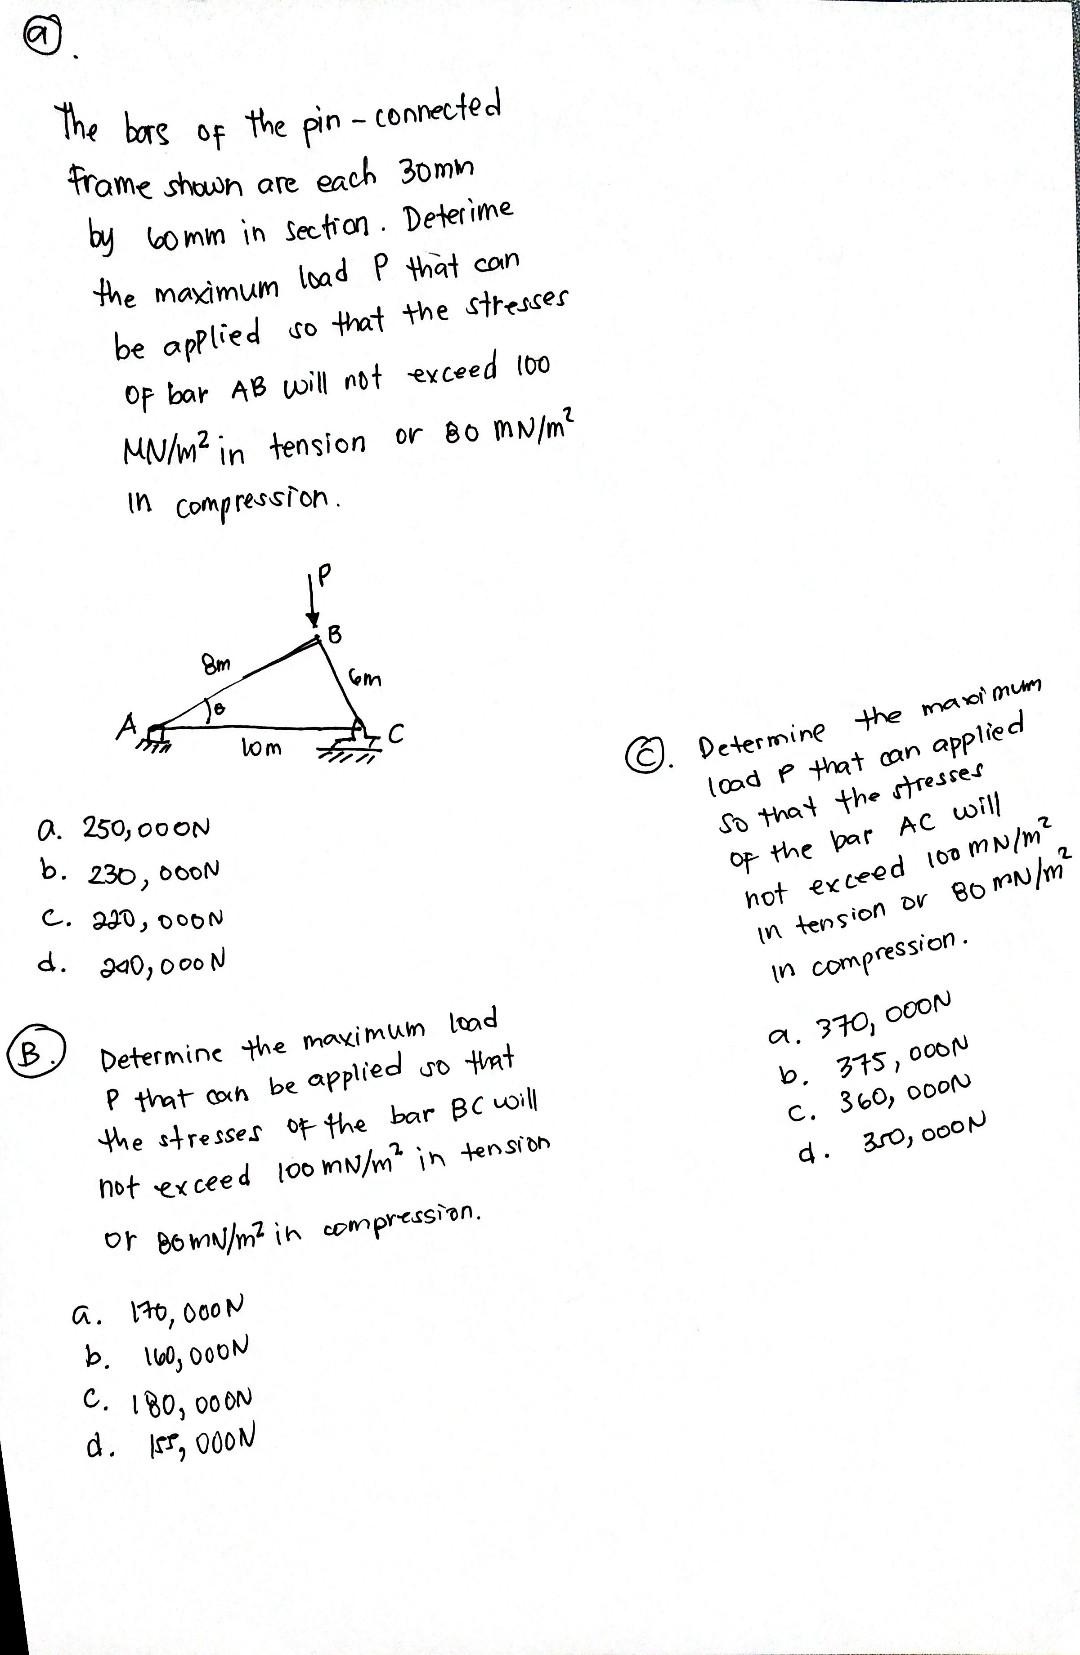 a.
The bars of the pin-connected
frame shown are each 30mm
by 60mm in section. Deterime
the maximum load P that can
be applied so that the stresses
of bar AB will not exceed 100
MN/m² in tension or 80 MN/m²
in compression.
P
B
8m
6m
θ
A
10m
C
a. 250,000N
b. 230,000N
c. 220,000N
d. 240,000N
B.
Determine the maximum load
P that can be applied so that
the stresses of the bar BC will
not exceed 100 MN/m² in tension
or 80 MN/m² in compression.
a. 170,000N
b. 160,000N
c. 180,000N
d. 155,000N
C. Determine the maximum
load P that can applied
so that the stresses
of the bar AC will
not exceed 100 MN/m²
in tension or 80 MN/m²
in compression.
a. 370,000N
b. 375,000N
c. 360,000N
d. 350,000N